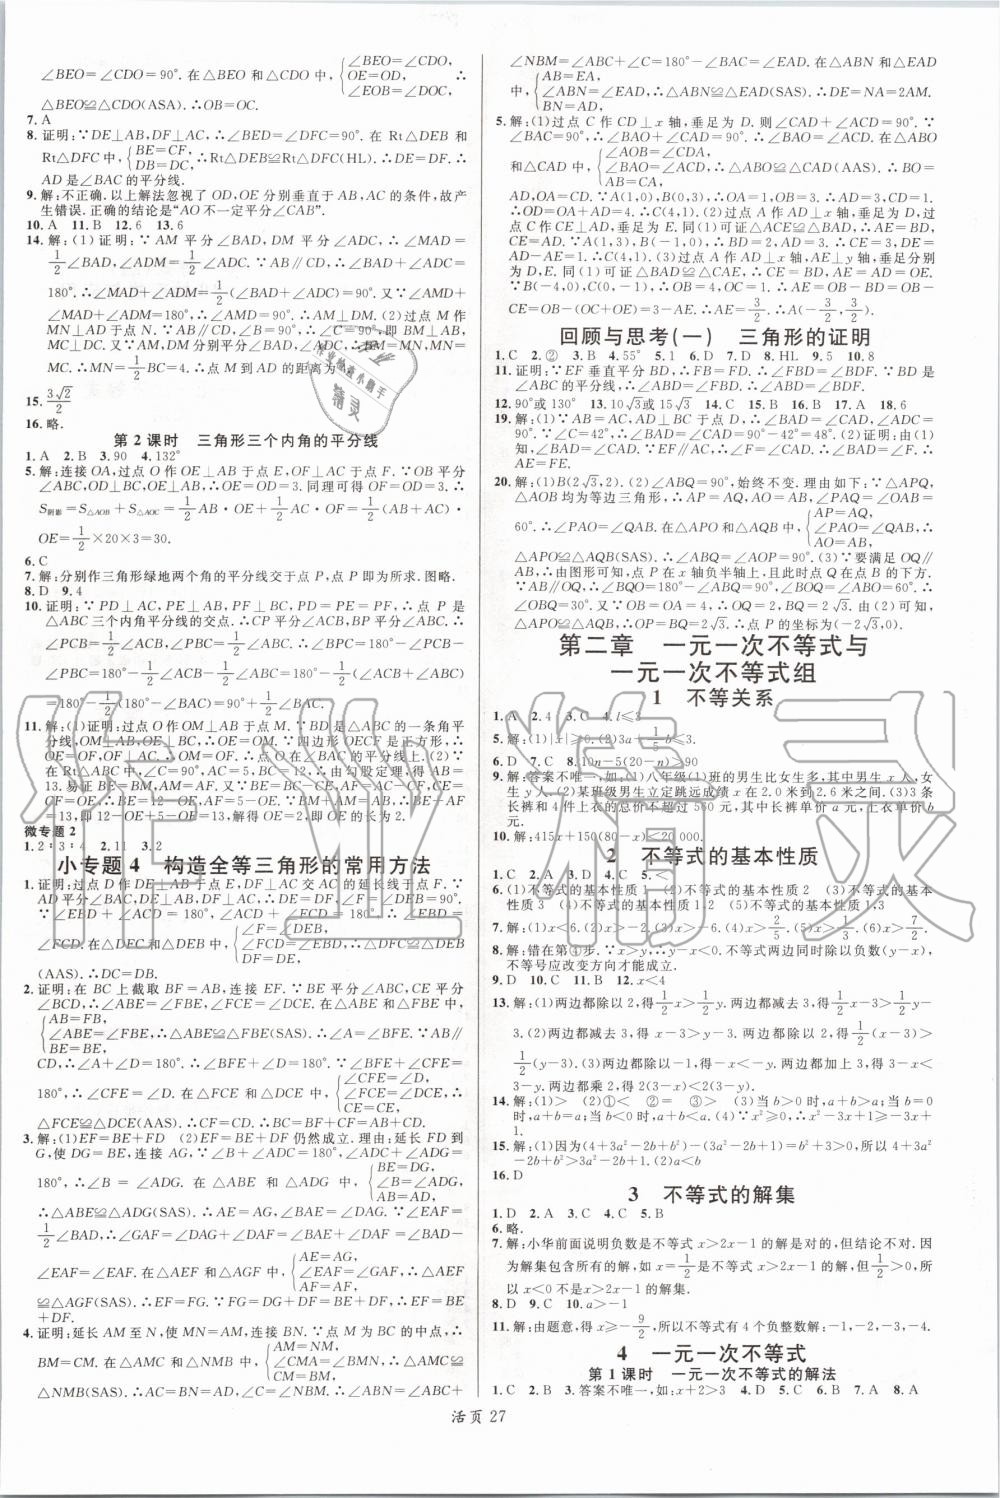 ∠BEO=∠CDO=90°. 在△BEO 和△CDO 中, {∠BEO=∠CDO, OE=OD, ∠EOB=∠DOC, ∴
△BEO≌△CDO(ASA). ∴OB=OC.
7. A
8. 证明:∵DE⊥AB,DF⊥AC,∴∠BED=∠DFC=90°. 在 Rt△DEB 和
Rt△DFC 中, {BE=CF, DB=DC, ∴Rt△DEB≌Rt△DFC(HL). ∴DE=DF. ∴
AD 是∠BAC 的平分线.
9. 解:不正确. 以上解法忽视了 OD,OE 分别垂直于 AB,AC 的条件,故产
生错误. 正确的结论是“AO 不一定平分∠CAB”.
10. A 11. B 12. 6 13. 6
14. 解:(1) 证明:∵AM 平分∠BAD,DM 平分∠ADC,∴∠MAD=
1/2∠BAD,∠ADM=1/2∠ADC. ∵AB∥CD,∴∠BAD+∠ADC=
180°. ∴∠MAD+∠ADM=1/2(∠BAD+∠ADC)=90°. 又∵∠AMD
+∠MAD+∠ADM=180°,∴∠AMD=90°. ∴AM⊥DM. (2)过点 M 作
MN⊥AD 于点 N. ∵AB∥CD,∠B=90°,∴∠C=90°,即 BM⊥AB,
MC⊥CD. 又∵AM 平分∠BAD,DM 平分∠ADC,∴BM=MN=
MC. ∴MC=1/2BC=4. ∴点 M 到 AD 的距离为
15. 3√2/2
16. 略.
第 2 课时 三角形三个内角的平分线
1. A 2. B 3. 90 4. 132°
5. 解:连接 OA,过点 O 作 OE⊥AB 于点 E,OF⊥AC 于点 F. ∵OB 平分
∠ABC,OD⊥BC,OE⊥AB,∴OE=OD=3. 同理可得 OF=OD=3. ∴
S阴影=S△AOB+S△AOC=1/2AB·OE+1/2AC·OF=1/2(AB+AC)·
OE=1/2×20×3=30.
6. C
7. 解:分别作三角形绿地两个角的平分线交于点 P,点 P 即为所求. 图略.
8. D 9. 4
10. 证明:∵PD⊥AC,PE⊥AB,PF⊥BC,PD=PE=PF,∴点 P 是
△ABC 三个内角平分线的交点. ∴CP 平分∠ACB,BP 平分∠ABC. ∴
∠PCB=1/2∠ACB,∠PBC=1/2∠ABC. ∴∠BPC=180°-∠PBC-
∠PCB=180°-1/2∠ABC-1/2∠ACB=180°-1/2(∠ABC+∠ACB)
=180°-1/2(180°-∠BAC)=90°+1/2∠BAC.
11. 解:(1)证明:过点 O 作 OM⊥AB 于点 M. ∵BD 是∠ABC 的一条角平
分线,OM⊥AB,OE⊥BC,∴OM=OE. ∵四边形 OECF 是正方形,∴
OE=OF,OF⊥AC. ∴OM=OF. ∴点 O 在∠BAC 的平分线上. (2)∵
在 Rt△ABC 中,AC=5,BC=12,∴由勾股定理,得 AB=
13. 易证 BE=BM,AM=AF. ∵BE=BC-CE,AF=AC-CF,CE=
CF=OE,∴BE=12-OE,AF=5-OE. ∴BM+AM=AB=BE+AF=
13,即 12-OE+5-OE=13. 解得 OE=2. ∴OE 的长为 2.
微专题 2
1. 2:3:4 2. 11 3. 2
小专题 4 构造全等三角形的常用方法
1. 证明:过点 D 作 DE⊥AB 于点 E,DF⊥AC 交 AC 的延长线于点 F. ∵
AD 平分∠BAC,DE⊥AB,DF⊥AC,∴DE=DF,∠F=∠DEB=90°.
∵∠EBD+∠ACD=180°,∠ACD+∠FCD=180°,∴∠EBD=
∠FCD. 在△FCD 和△EBD 中, {∠F=∠DEB, ∠FCD=∠EBD, DF=DE, ∴△FCD≌△EBD
(AAS). ∴DC=DB.
2. 证明:在 BC 上截取 BF=AB,连接 EF. ∵BE 平分∠ABC,CE 平分
∠BCD,∴∠ABE=∠FBE,∠FCE=∠DCE. 在△ABE 和△FBE 中,
{AB=FB, ∠ABE=∠FBE, BE=BE, ∴△ABE≌△FBE(SAS). ∴∠A=∠BFE. ∵AB∥
CD,∴∠A+∠D=180°. ∴∠BFE+∠D=180°. ∵∠BFE+∠CFE=
180°,∴∠CFE=∠D. 在△FCE 和△DCE 中, {∠CFE=∠D, ∠FCE=∠DCE, CE=CE, ∴
△FCE≌△DCE(AAS). ∴CF=CD. ∴BC=BF+CF=AB+CD.
3. 解:(1)EF=BE+FD (2)EF=BE+DF 仍然成立. 理由:延长 FD 到
G,使 DG=BE,连接 AG. ∵∠B+∠ADF=180°,∠ADF+∠ADG=
180°,∴∠B=∠ADG. 在△ABE 和△ADG 中, {BE=DG, ∠B=∠ADG, AB=AD,
∴△ABE≌△ADG(SAS). ∴AE=AG,∠BAE=∠DAG. ∵∠EAF=
1/2∠BAD,∴∠GAF=∠DAG+∠DAF=∠BAE+∠DAF=∠BAD-
∠EAF=∠EAF. 在△AEF 和△AGF 中, {AE=AG, ∠EAF=∠GAF, AF=AF, ∴△AEF
≌△AGF(SAS). ∴EF=FG. ∵FG=DG+DF=BE+DF,∴EF=BE
+DF.
4. 证明:延长 AM 至 N,使 MN=AM,连接 BN. ∵点 M 为 BC 的中点,∴
BM=CM. 在△AMC 和△NMB 中, {AM=NM, ∠CMA=∠BMN, CM=BM, ∴△AMC≌
△NMB(SAS). ∴AC=BN,∠C=∠NBM. ∴∠ABN=∠ABC+
∠NBM=∠ABC+∠C=180°-∠BAC=∠EAD. 在△ABN 和△EAD
中, {AB=EA, ∠ABN=∠EAD, BN=AD, ∴△ABN≌△EAD(SAS). ∴DE=NA=2AM.
5. 解:(1)过点 C 作 CD⊥x 轴,垂足为 D. 则∠CAD+∠ACD=90°. ∵
∠BAC=90°,∴∠BAO+∠CAD=90°. ∴∠BAO=∠ACD. 在△ABO
和△CAD 中, {∠BOA=∠ADC, ∠BAO=∠ACD, AB=CA, ∴△ABO≌△CAD(AAS). ∴BO=
AD,OA=CD. ∵A(1,0),B(0,3),∴OA=1,OB=3. ∴AD=3,CD=1.
∴OD=OA+AD=4. ∴C(4,1). (2)过点 A 作 AD⊥x 轴,垂足为 D,过
点 C 作 CE⊥AD,垂足为 E. 同(1)可证△ACE≌△BAD,∴AE=BD,
CE=AD. ∵A(1,3),B(-1,0),∴BD=2,AD=3. ∴CE=3,DE=AD-
AE=1. ∴C(4,1). (3)过点 A 作 AD⊥CE,AE⊥y 轴,垂足分别
为 D,E. 同(1)可证△CDA≌△BEA,∴CE=BE,AD=AE=OE.
∵B(-4,0),C(0,-1),∴OB=4,OC=1. ∴AE=OB-BD=OB-
CE=OB-(OC+OE)=4-1-AE=3-AE. ∴AE=3/2. ∴A(-3/2,3/2).
回顾与思考(一) 三角形的证明
1. C 2. ② 3. B 4. 55° 5. 1 6. D 7. D 8. HL 9. 5 10. 8
11. 证明:∵EF 垂直平分 BD,∴FB=FD. ∴∠FBD=∠BDF. ∵BD 是
∠ABC 的平分线,∴∠ABD=∠FBD. ∴∠ABD=∠BDF. ∴DF∥AB.
12. 90°或 130° 13. 10√3或 15√3 14. C 15. B 16. B 17. A 18. 6
19. 解:(1)∵AB=AC,AD⊥BC 于点 D,∴∠BAD=∠CAD,∠ADC=
90°. 又∵∠C=42°,∴∠BAD=∠CAD=90°-42°=48°. (2)证明:由(1)
知∠BAD=∠CAD. ∵EF∥AC,∴∠F=∠CAD. ∴∠BAD=∠F. ∴
AE=FE.
20. 解:(1)B(2√3,2). (2)∠ABQ=90°,始终不变. 理由如下:∵△APQ,
△AOB 均为等边三角形,∴AP=AQ,AO=AB,∠PAQ=∠OAB.
∴∠PAO=∠QAB. 在△APO 和△AQB 中, {AP=AQ, ∠PAO=∠QAB, AO=AB, ∴
△APO≌△AQB(SAS). ∴∠ABQ=∠AOP=90°. (3)∵要满足 OQ∥
AB,∴由图形可知,点 P 在 x 轴负半轴上,且此时点 Q 在点 B 的下方.
∵AB∥OQ,∴∠BQO=180°-∠ABQ=90°,∠BOQ=∠ABO=60°. ∴
∠OBQ=30°. 又∵OB=OA=4,∴OQ=2,BQ=2√3. 由(2)可知,
△APO≌△AQB,∴OP=BQ=2√3. ∴点 P 的坐标为(-2√3,0).
第二章 一元一次不等式与
一元一次不等式组
1 不等关系
1. A 2. 4 3. C 4. l≤3
5. 解:(1)|x|≥0. (2)3a+1/5b≤3.
6. D 7. C 8. 10n-5(20-n)>90
9. 解:答案不唯一,如:(1)八年级(1)班的男生比女生多,其中男生 x 人,女
生 y 人. (2)某班级男生立定跳远成绩 x 在 2.0 米到 2.6 米之间. (3)3 条
长裤和 4 件上衣的总价不超过 560 元,其中长裤单价 a 元,上衣单价 b
元.
10. 解:415x+150(80-x)≤20 000.
2 不等式的基本性质
1. C 2. A 3. A 4. C 5. <
6. (1)不等式的基本性质 1 (2)不等式的基本性质 2 (3)不等式的基本
性质 3 (4)不等式的基本性质 1,2 (5)不等式的基本性质 1,3
7. 解:(1)x<6. (2)x>2/5. (3)x>-2/5. (4)x>-7/2.
8. 解:错在第④步. ∵x>y,∴y-x<0. 不等式两边同时除以负数(y-x),
不等号应改变方向才能成立.
9. D 10. C 11. B 12. x<4
13. 解:(1)两边都除以 2,得1/2x>1/2y. 两边都减去 3,得1/2x-3>1/2y-
3. (2)两边都减去 3,得 x-3>y-3. 两边都除以 2,得1/2(x-3)>
1/2(y-3). (3)两边都除以-1,得-x<-y. 两边都加上 3,得 3-x<
3-y. 两边都乘 2,得 2(3-x)<2(3-y).
14. 解:(1)> (2)①< ② = ③> (3)当 b>0 时,a+b>a;当 b=0
时,a+b=a;当 b<0 时,a+b<a.
15. 解:(1)因为(4+3a²-2b+b²)-(3a²-2b+1)=b²+3>0,所以 4+3a²-
2b+b²>3a²-2b+1. (2)a<b
16. D
3 不等式的解集
1. D 2. A 3. C 4. C 5. B
6. 略.
7. 解:小华前面说明负数是不等式 x>2x-1 的解是对的,但结论不对. 因
为解集包含所有的解,如 x=1/2是不等式 x>2x-1 的解,但1/2>0,所
以 x<0 不是 x>2x-1 的解集.
8. D 9. C 10. a>-1
11. 解:由题意,得 x≥-9/2,所以不等式有 4 个负整数解:-1,-2,-3,-4.
4 一元一次不等式
第 1 课时 一元一次不等式的解法
1. C 2. B 3. 答案不唯一,如:x+2>3 4. D 5. C 6. B 7. A 8. A
活页 27